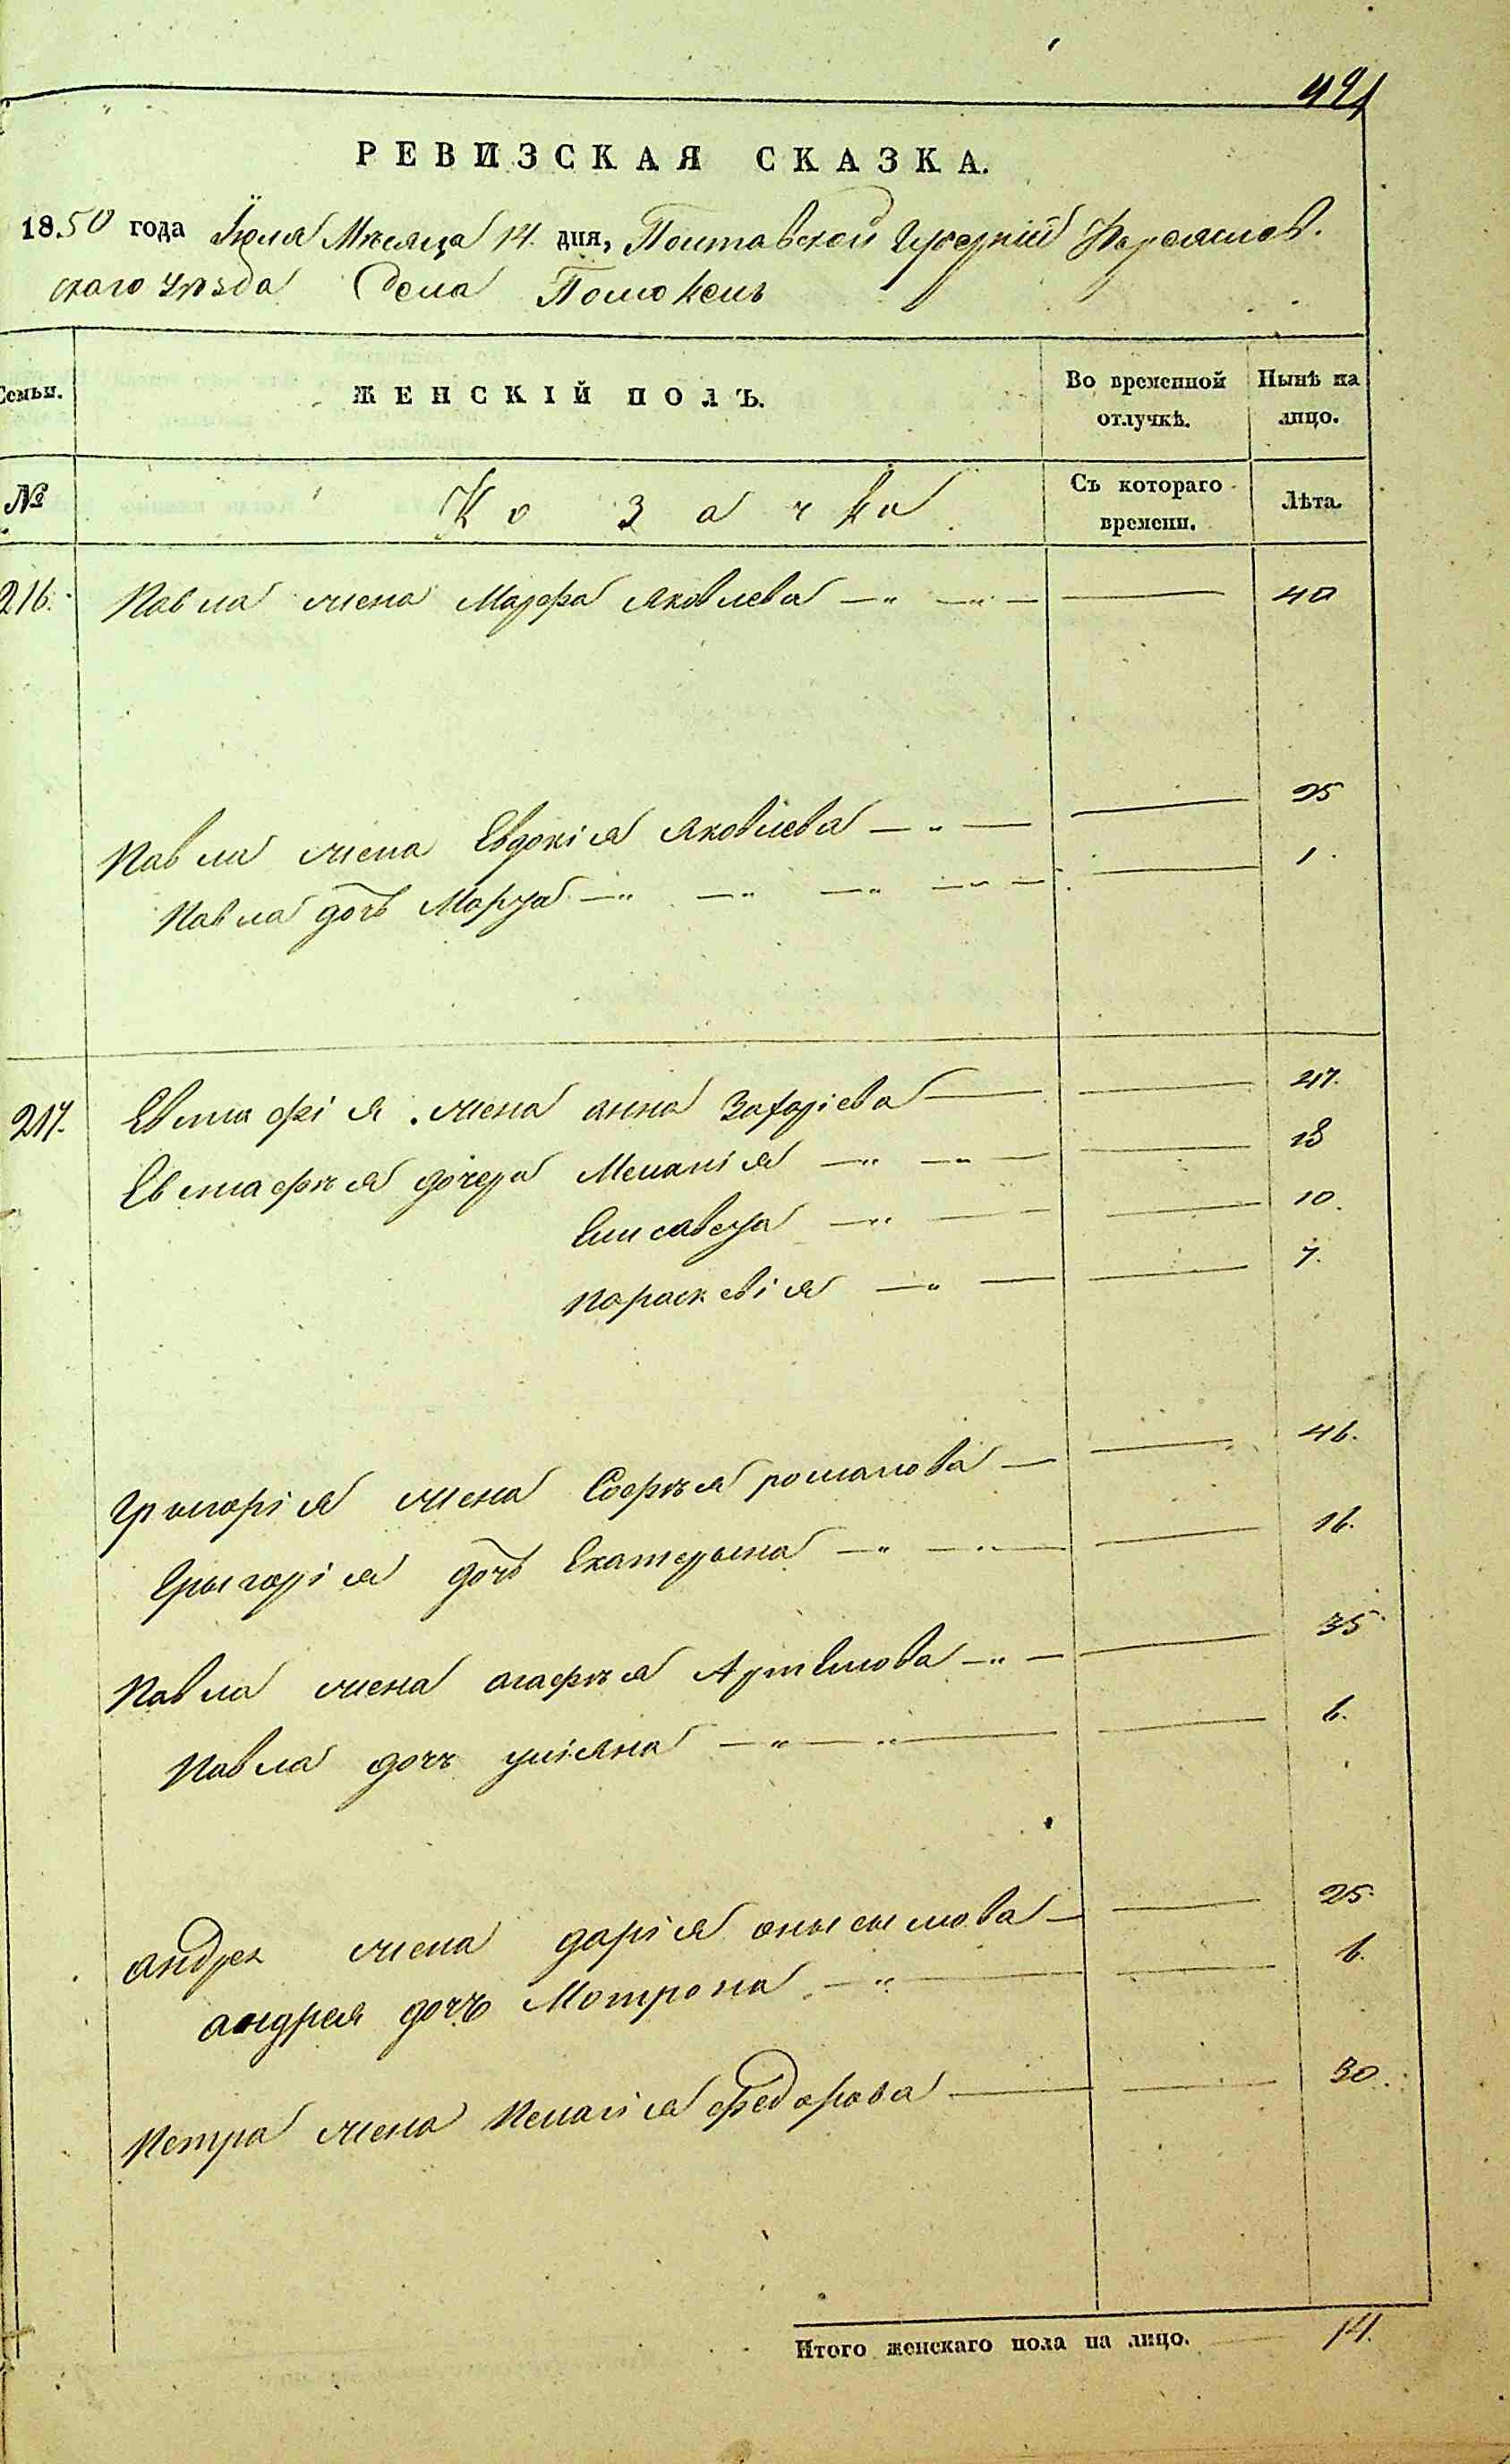 491
РЕВИЗСКАЯ СКАЗКА.
1850 года Іюля Мѣсяца 14. дня, Полтавской Губерніи Переяслов.
скаго уѣзда Села Помоклъ
Семьи.
ЖЕНСКІЙ ПОЛЪ.
Во временной отлучкѣ.
Нынѣ на лицо.
№
Козачка
Съ котораго времени.
Лѣта.
216. Павла жена Марфа Яковлева — „ — „ — — 40
Павла жена Евдокія Яковлева — „ — — 25
Павла дочь Марѳа — „ — „ — „ — „ — — 1.
217. Евстафія жена анна Захаріева — — 47.
Евстафѣя дочери Меланія — „ — „ — — 13
Елисавета — „ — — 10.
параскевія — „ — — 7.
Григорія жена Софѣя романова — — 46.
Григорія дочь Екатерына — „ — „ — — 16.
Павла жена агафѣя Артемова — „ — — 35
Павла дочъ уліяна — „ — „ — — 6.
андрея жена дарія онысымова — — 25.
андрея дочъ Мотрона — „ — — 6.
Петра жена Пелагія федорова — — 30.
Итого женскаго пола на лицо. — 14.